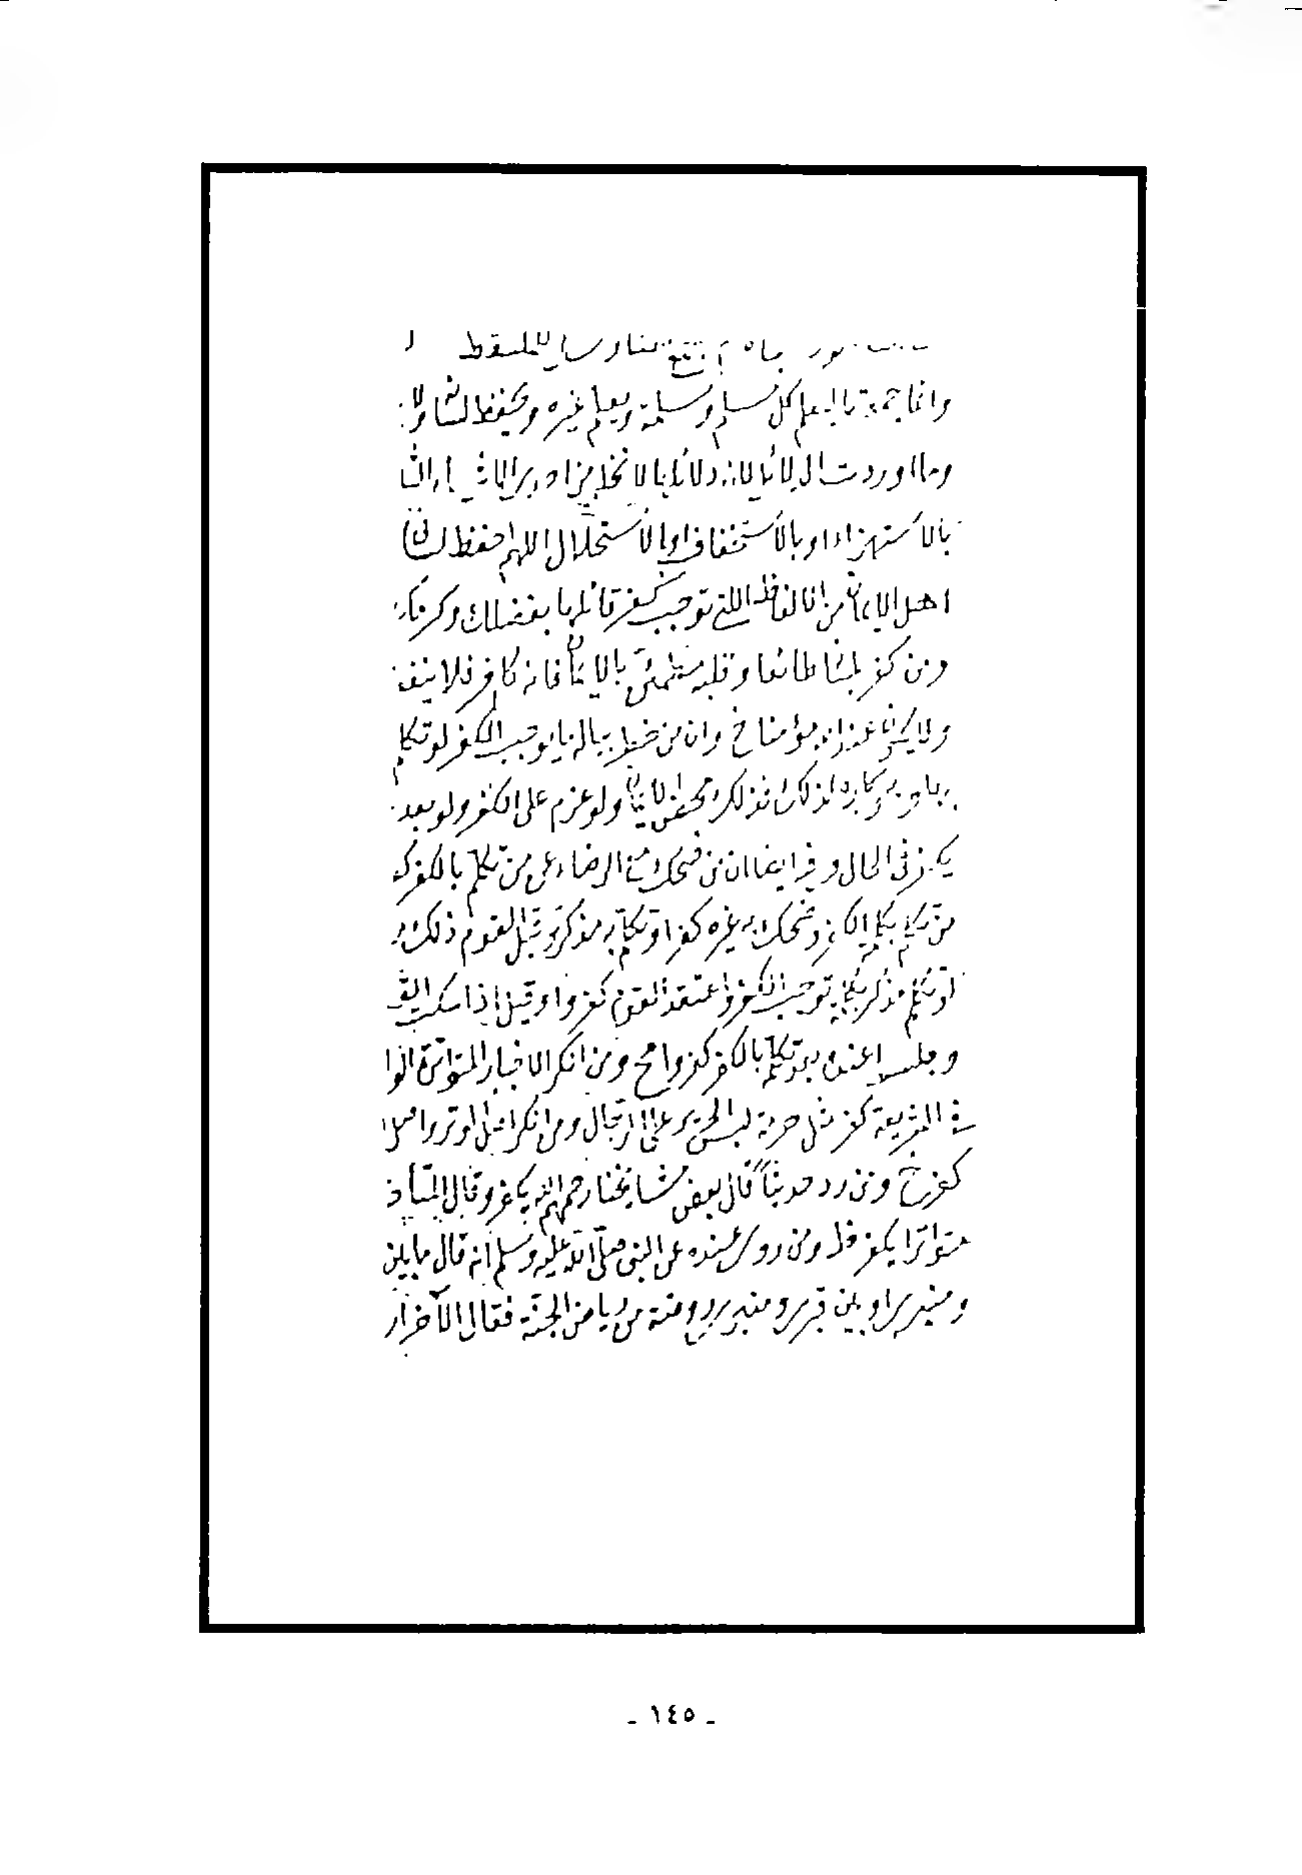 وانما جمعته ليعلم كل مسلم ومسلمة ويعلم غيره ويحفظ لسانه
وما اوردت
بالاستهزاء او بالاستخفاف او بالاستحلال اللهم احفظ لسان
اهل الايمان من الالفاظ اللتي توجب كفر قائلها بفضلك وكرمك
ومن كفر بلسانه طائعا وقلبه مطمئن بالايمان فانه كافر فلا ينفعه
ولا يكون عند الله مؤمنا خ وان من خطر بباله ما يوجب الكفر لو تكلم
به وهو كاره لذلك فذلك محض الايمان ولو عزم على الكفر ولو بعد
يكفر في الحال وفي ايضا ان من ضحك مع الرضاء عن من تكلم بالكفر كفر
من تكلم بكلمة الكفر وضحك به غيره كفرا و تكلم به مذكر وقبل القوم ذلك
او تكلم مذكر بكلمة توجب الكفر واعتقد القوم كفروا وقيل اذا سكت القوم
وجلسوا عنده بعد تكلمه بالكفر كفروا مح ومن انكر الاخبار المتواترة الوا
في الشريعة كفر مثل حرمة لبس الحرير على الرجال ومن انكر اصل الوتر واصل
كفر خ ومن رد حديثا قال بعض مشايخنا رحمهم الله يكفر وقال المتأخ
متواترا يكفر ومن روى عنده عن النبي صلى الله عليه وسلم انه قال ما بين
ومنبري او بين قبري ومنبري روضة من رياض الجنة فقال الآخر ار
- ١٤٥ -